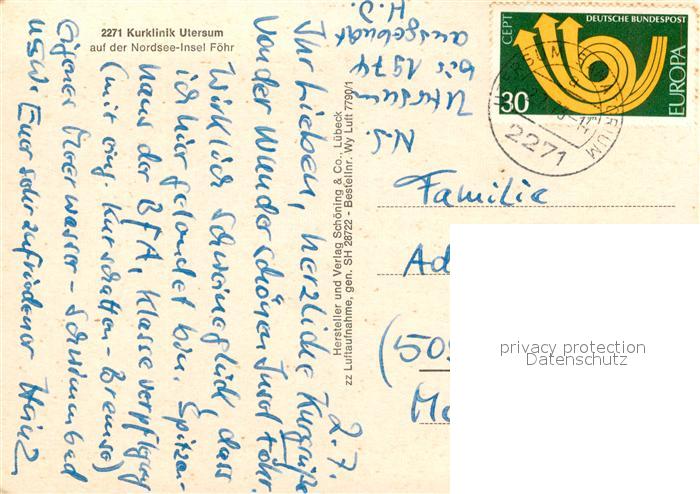 2271 Kurklinik Utersum
auf der Nordsee-Insel Föhr
2.7.
Ihr Lieben, herzliche Kurgrüße
von der wunderschönen Insel Föhr.
Wirklich Schweineglück, dass
ich hier gelandet bin. Spitzen-
haus der BFA, Klasse Verpflegung
(mit eing. Kurschatten-Bremse)
Eigenes Meerwasser-Schwimmbad
usw. Euer sehr zufriedener Heinz
N.S.
Utersum
bis 1974
ausgebucht
H. D.
Hersteller und Verlag Schöning & Co., Lübeck
zz Luftaufnahme, gen. SH 28722 - Bestellnr. Wy Luft 7790/1
CEPT
DEUTSCHE BUNDESPOST
EUROPA
30
2271
Familie
Ad
(50
privacy protection
Datenschutz